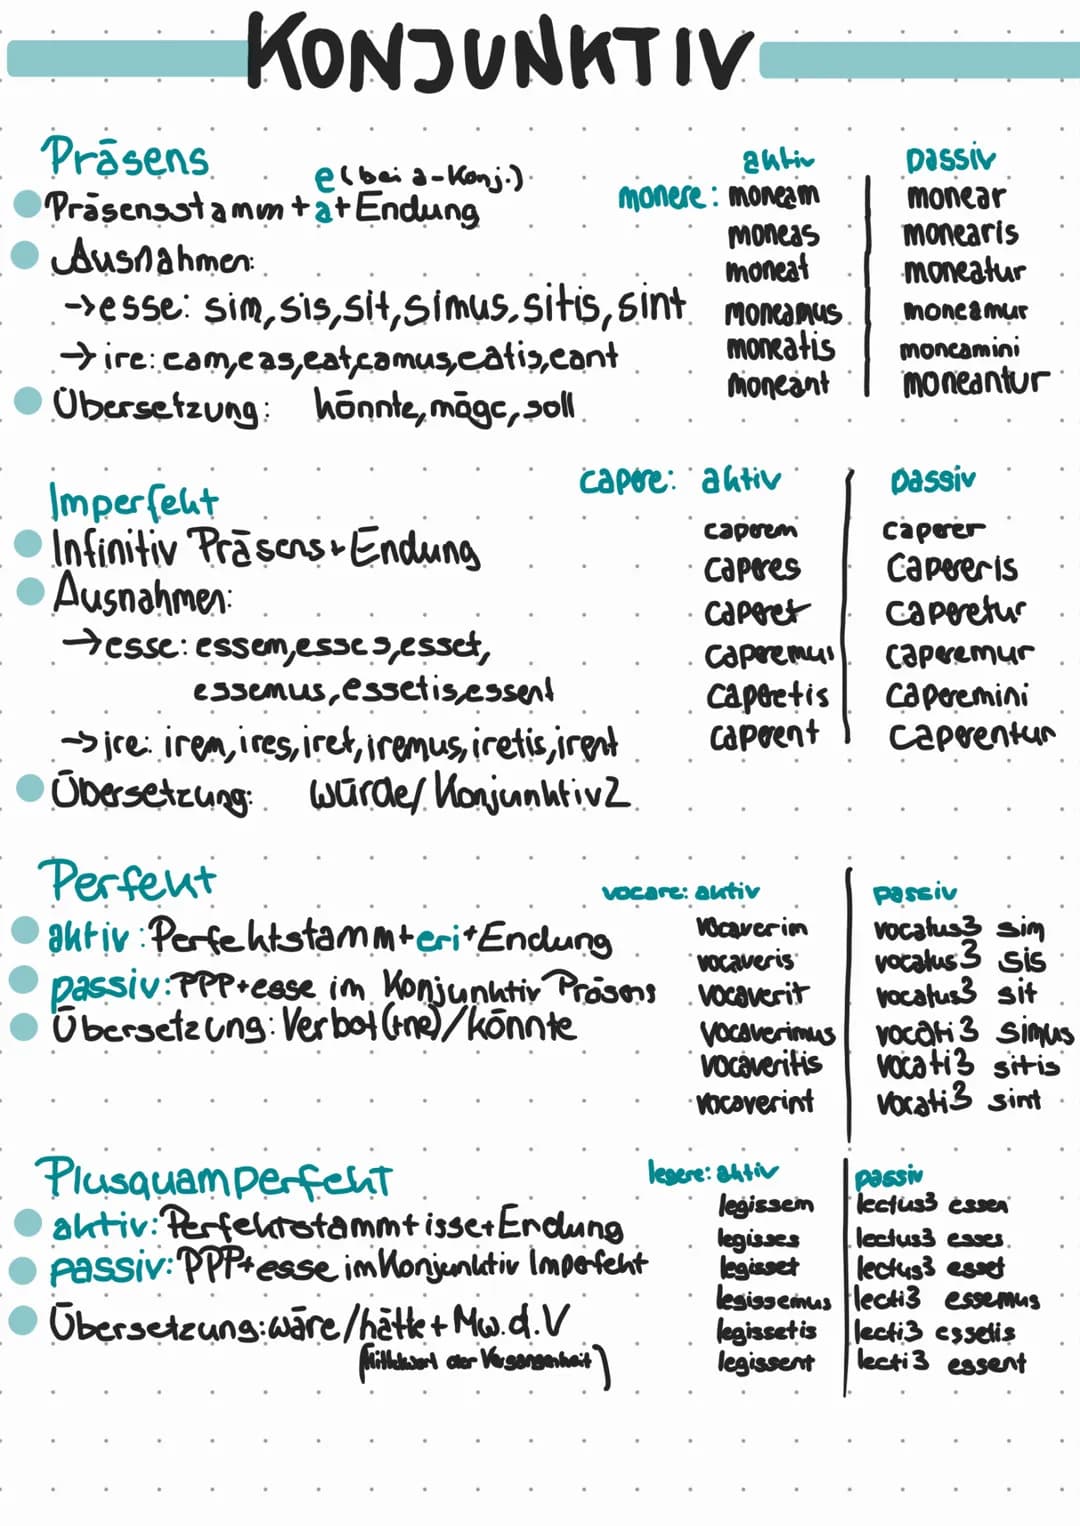 KONJUNKTIV
Präsens
e (bei a-Konj.)
Präsensstamm + a + Endung
Ausnahmen:
→ esse: sim, sis, sit, simus, sitis, sint
→ ire: eam, eas, eat, eamus, eatis, eant
Übersetzung: könnte, möge, soll
aktiv passiv
monere: moneam monear
moneas monearis
moneat moneatur
moneamus moneamur
moneatis moneamini
moneant moneantur
Imperfekt
Infinitiv Präsens + Endung
Ausnahmen:
→ esse: essem, esses, esset,
essemus, essetis, essent
→ ire: irem, ires, iret, iremus, iretis, irent
Übersetzung: würde/ Konjunktiv 2
capere: aktiv passiv
caperem caperer
caperes capereris
caperet caperetur
caperemus caperemur
caperetis caperemini
caperent caperentur
Perfekt
aktiv: Perfektstamm + eri + Endung
passiv: PPP + esse im Konjunktiv Präsens
Übersetzung: Verbot (+ne)/könnte
vocare: aktiv passiv
vocaverim vocatus3 sim
vocaveris vocatus3 sis
vocaverit vocatus3 sit
vocaverimus vocati3 simus
vocaveritis vocati3 sitis
vocaverint vocati3 sint
Plusquamperfekt
aktiv: Perfektstamm + isse + Endung
passiv: PPP + esse im Konjunktiv Imperfekt
Übersetzung: wäre/hätte + Mw.d.V
(Mittelwort der Vergangenheit)
legere: aktiv passiv
legissem lectus3 essem
legisses lectus3 esses
legisset lectus3 esset
legissemus lecti3 essemus
legissetis lecti3 essetis
legissent lecti3 essent